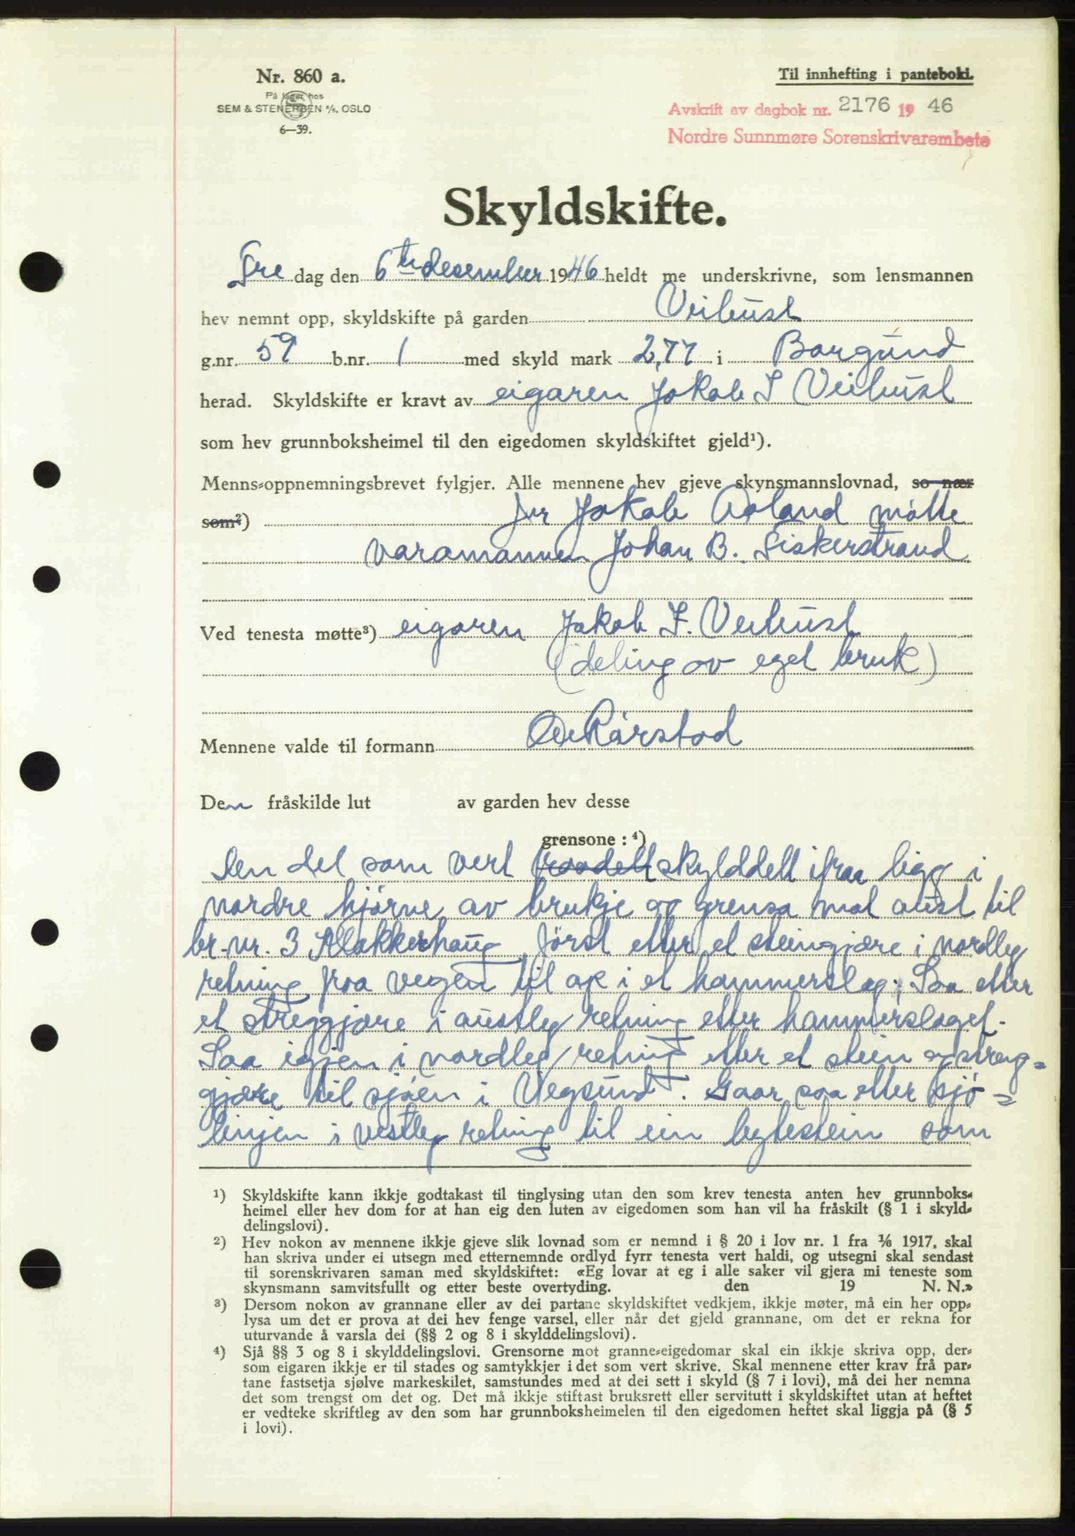 Nr. 860 a.
På lager hos
SEM & STENERSEN A/S, OSLO
6—39.
Til innhefting i panteboki.
Avskrift av dagbok nr. 2176 19 46
Nordre Sunnmøre Sorenskrivarembete
Skyldskifte.
Fre dag den 6te desember 1946 heldt me underskrivne, som lensmannen
hev nemnt opp, skyldskifte på garden Veibust
g.nr. 59 b.nr. 1 med skyld mark 2,77 i Borgund
herad. Skyldskifte er kravt av eigaren Jakob I Veibust
som hev grunnboksheimel til den eigedomen skyldskiftet gjeld¹).
Menns-oppnemningsbrevet fylgjer. Alle mennene hev gjeve skynsmannslovnad, so nær
som²) for Jakob Aoland møtte
varamannen Johan B. Fiskerstrand
Ved tenesta møtte³) eigaren Jakob I. Veibust
(deling av eget bruk)
Mennene valde til formann O Rårstad
Den fråskilde lut av garden hev desse
grensone : ⁴)
Den del som vert fraadelt skylddelt ifraa ligg i
nordre hjørne av brukje og grensa mot aust til
br.nr. 3 Klakkehaug først etter et steingjære i nordleg
retning fraa vegen til op i et hammerslag; Saa etter
et streggjære i austleg retning etter hammerslaget.
Saa igjen i nordleg retning etter et stein og streng-
gjære til sjøen i Vegsund. Gaar saa etter sjø=
linjen i vestleg retning til ein bytestein som
¹) Skyldskifte kann ikkje godtakast til tinglysing utan den som krev tenesta anten hev grunnboks-
heimel eller hev dom for at han eig den luten av eigedomen som han vil ha fråskilt (§ 1 i skyld-
delingslovi).
²) Hev nokon av mennene ikkje gjeve slik lovnad som er nemnd i § 20 i lov nr. 1 fra ⅙ 1917, skal
han skriva under ei utsegn med etternemnde ordlyd fyrr tenesta vert haldi, og utsegni skal sendast
til sorenskrivaren saman med skyldskiftet: «Eg lovar at eg i alle saker vil gjera mi teneste som
skynsmann samvitsfullt og etter beste overtyding. den 19 N. N.»
³) Dersom nokon av grannane eller av dei partane skyldskiftet vedkjem, ikkje møter, må ein her opp-
lysa um det er prova at dei hev fenge varsel, eller når det gjeld grannane, om det er rekna for
uturvande å varsla dei (§§ 2 og 8 i skylddelingslovi).
⁴) Sjå §§ 3 og 8 i skylddelingslovi. Grensorne mot granne-eigedomar skal ein ikkje skriva opp, der-
som eigaren ikkje er til stades og samtykkjer i det som vert skrive. Skal mennene etter krav frå par-
tane fastsetja sjølve markeskilet, samstundes med at dei sett i skyld (§ 7 i lovi), må dei her nemna
det som trengst om det og. Det må ikkje stiftast bruksrett eller servitutt i skyldskiftet utan at heftet
er vedteke skriftleg av den som har grunnboksheimelen til den eigedomen heftet skal liggja på (§ 5
i lovi).